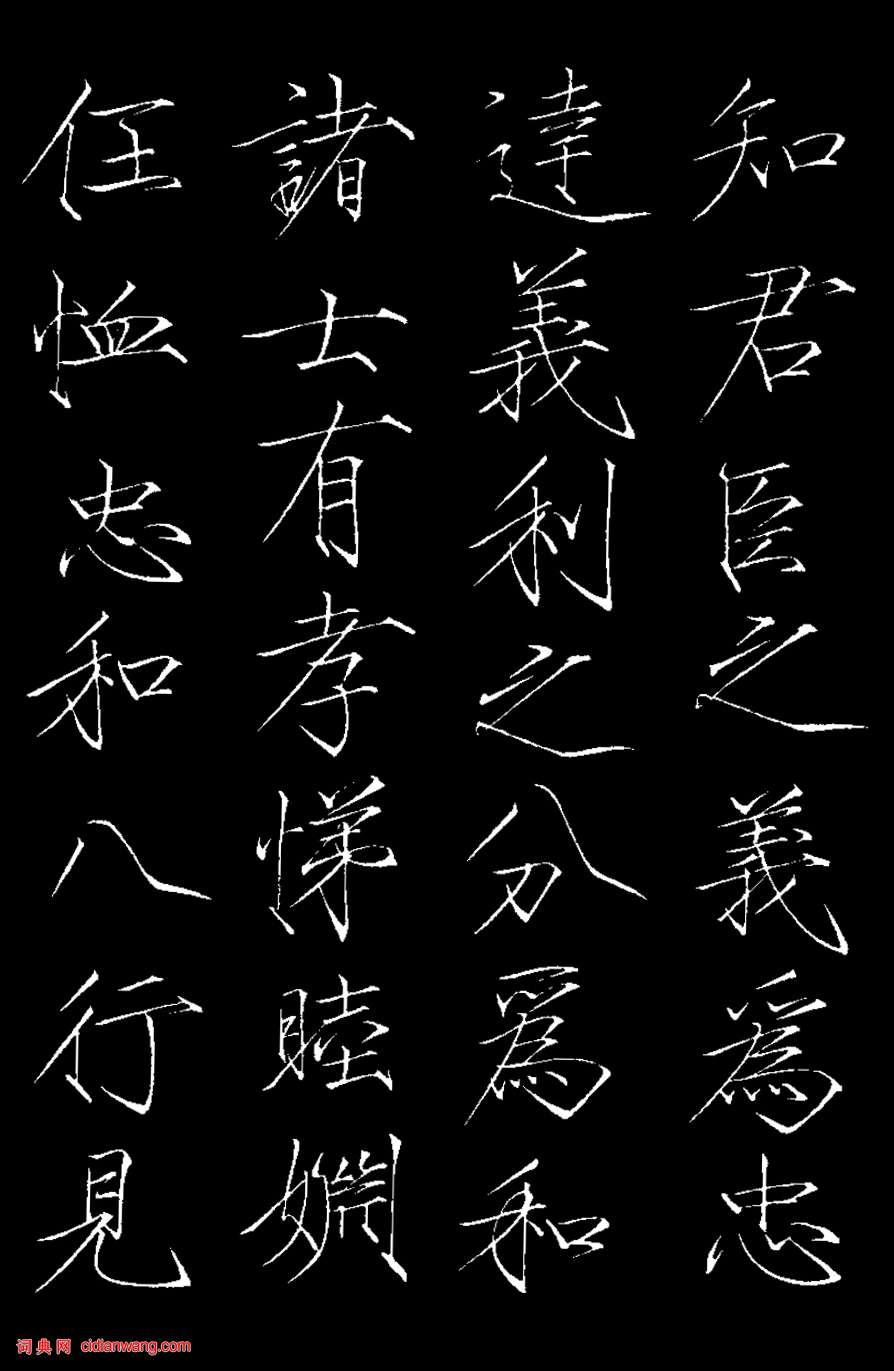 知君臣之義爲忠
達義利之分爲和
諸士有孝悌睦婣
任恤忠和八行見
词典网 cidianwang.com